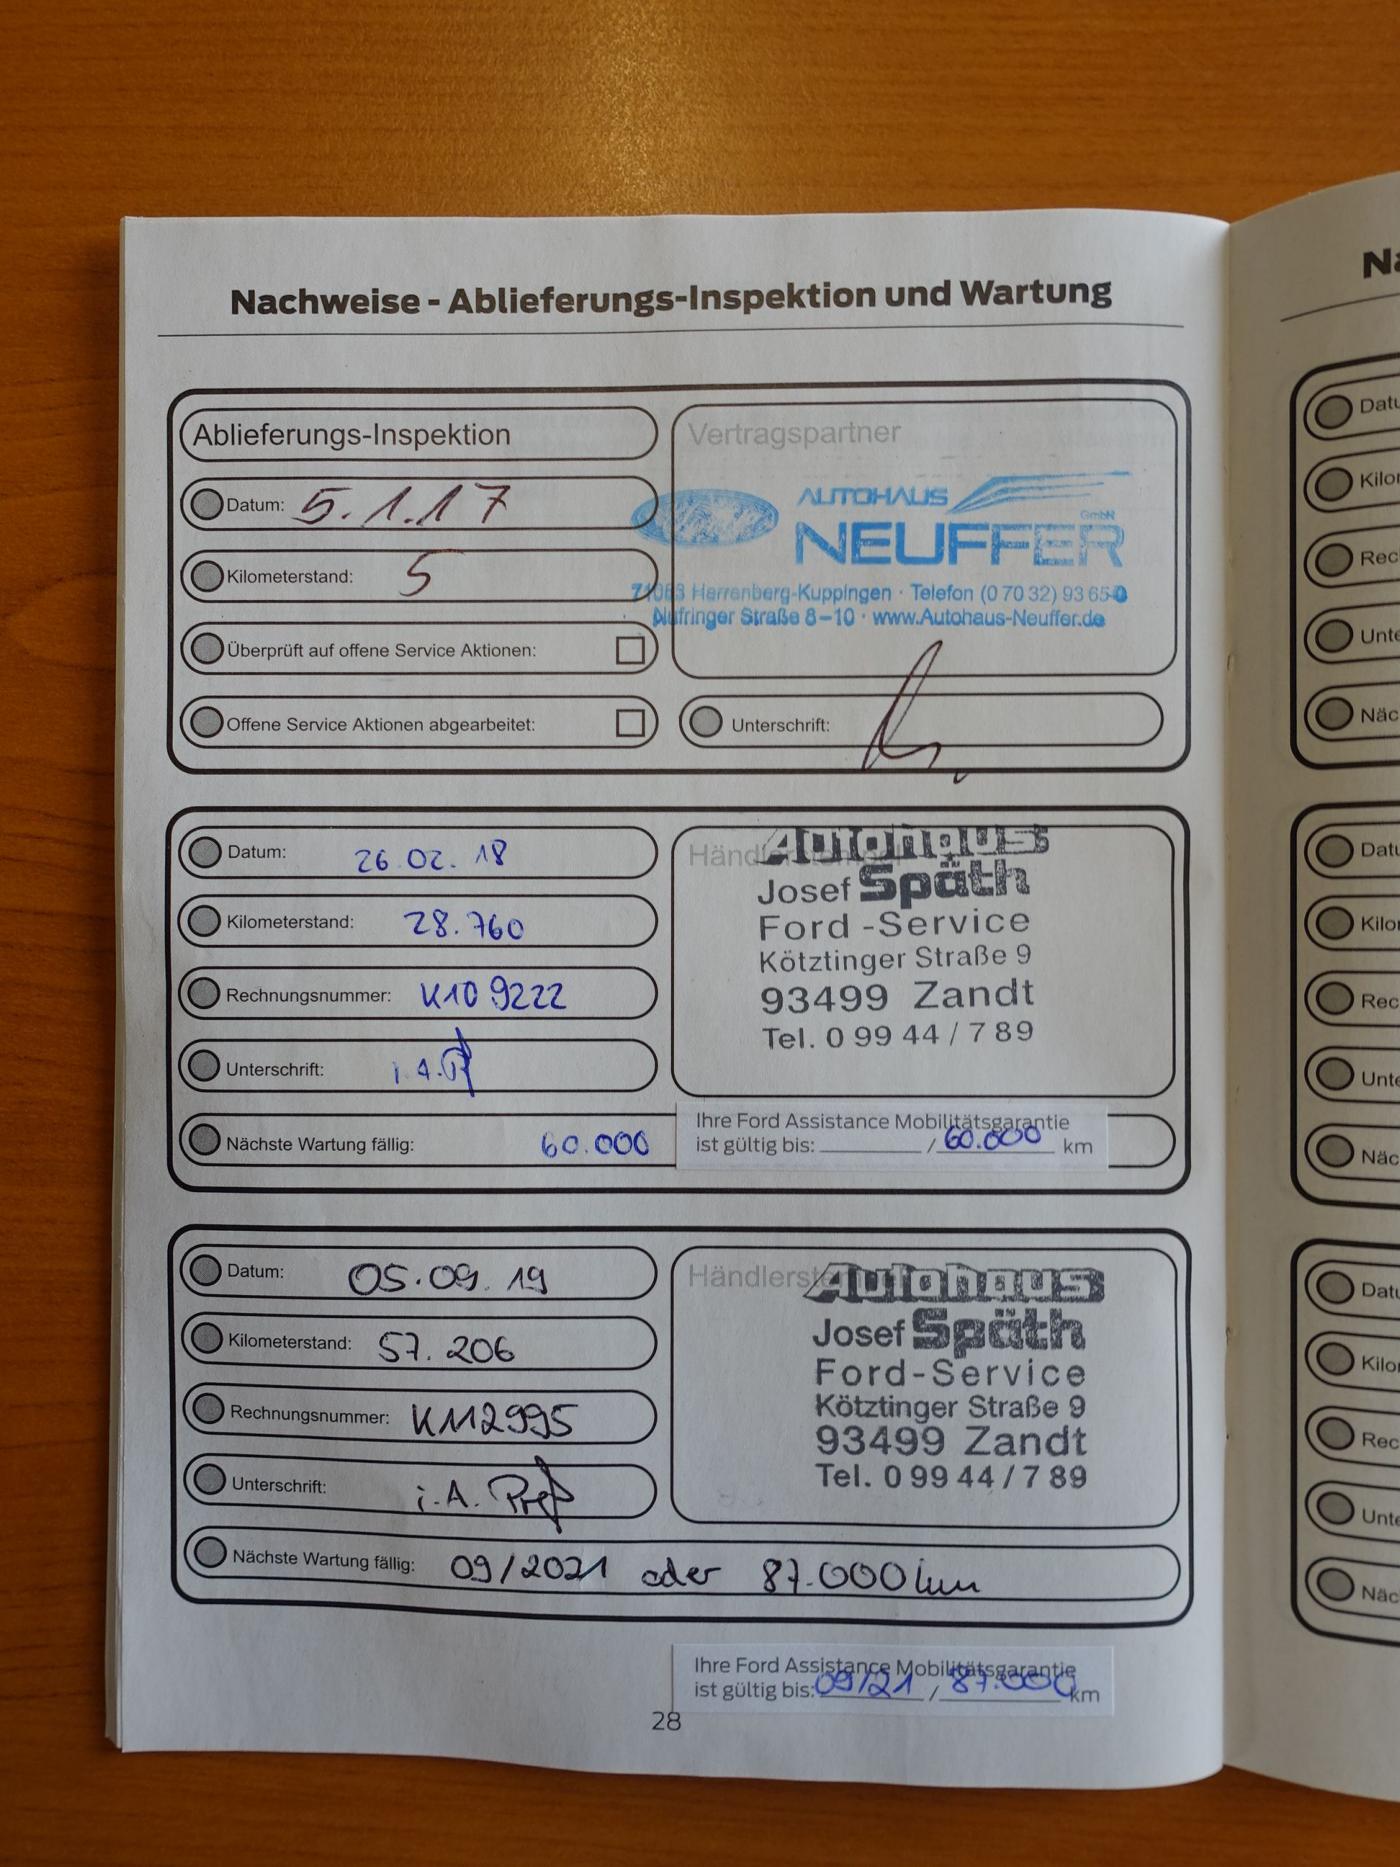 Nachweise - Ablieferungs-Inspektion und Wartung
Ablieferungs-Inspektion
Datum: 5.1.17
Kilometerstand: 5
Überprüft auf offene Service Aktionen:
Offene Service Aktionen abgearbeitet:
Vertragspartner
AUTOHAUS
NEUFFER GmbH
71083 Herrenberg-Kuppingen · Telefon (0 70 32) 93 65-0
Nufringer Straße 8-10 · www.Autohaus-Neuffer.de
Unterschrift:
Datum: 26.02.18
Kilometerstand: 28.760
Rechnungsnummer: K109222
Unterschrift: i.A.
Nächste Wartung fällig: 60.000
Händlerstempel
Autohaus
Josef Späth
Ford-Service
Kötztinger Straße 9
93499 Zandt
Tel. 0 99 44 / 7 89
Ihre Ford Assistance Mobilitätsgarantie
ist gültig bis: / 60.000 km
Datum: 05.09.19
Kilometerstand: 57.206
Rechnungsnummer: K112995
Unterschrift: i.A.
Nächste Wartung fällig: 09/2021 oder 87.000 km
Autohaus
Josef Späth
Ford-Service
Kötztinger Straße 9
93499 Zandt
Tel. 0 99 44 / 7 89
Ihre Ford Assistance Mobilitätsgarantie
ist gültig bis: 09/21 / 87.000 km
28